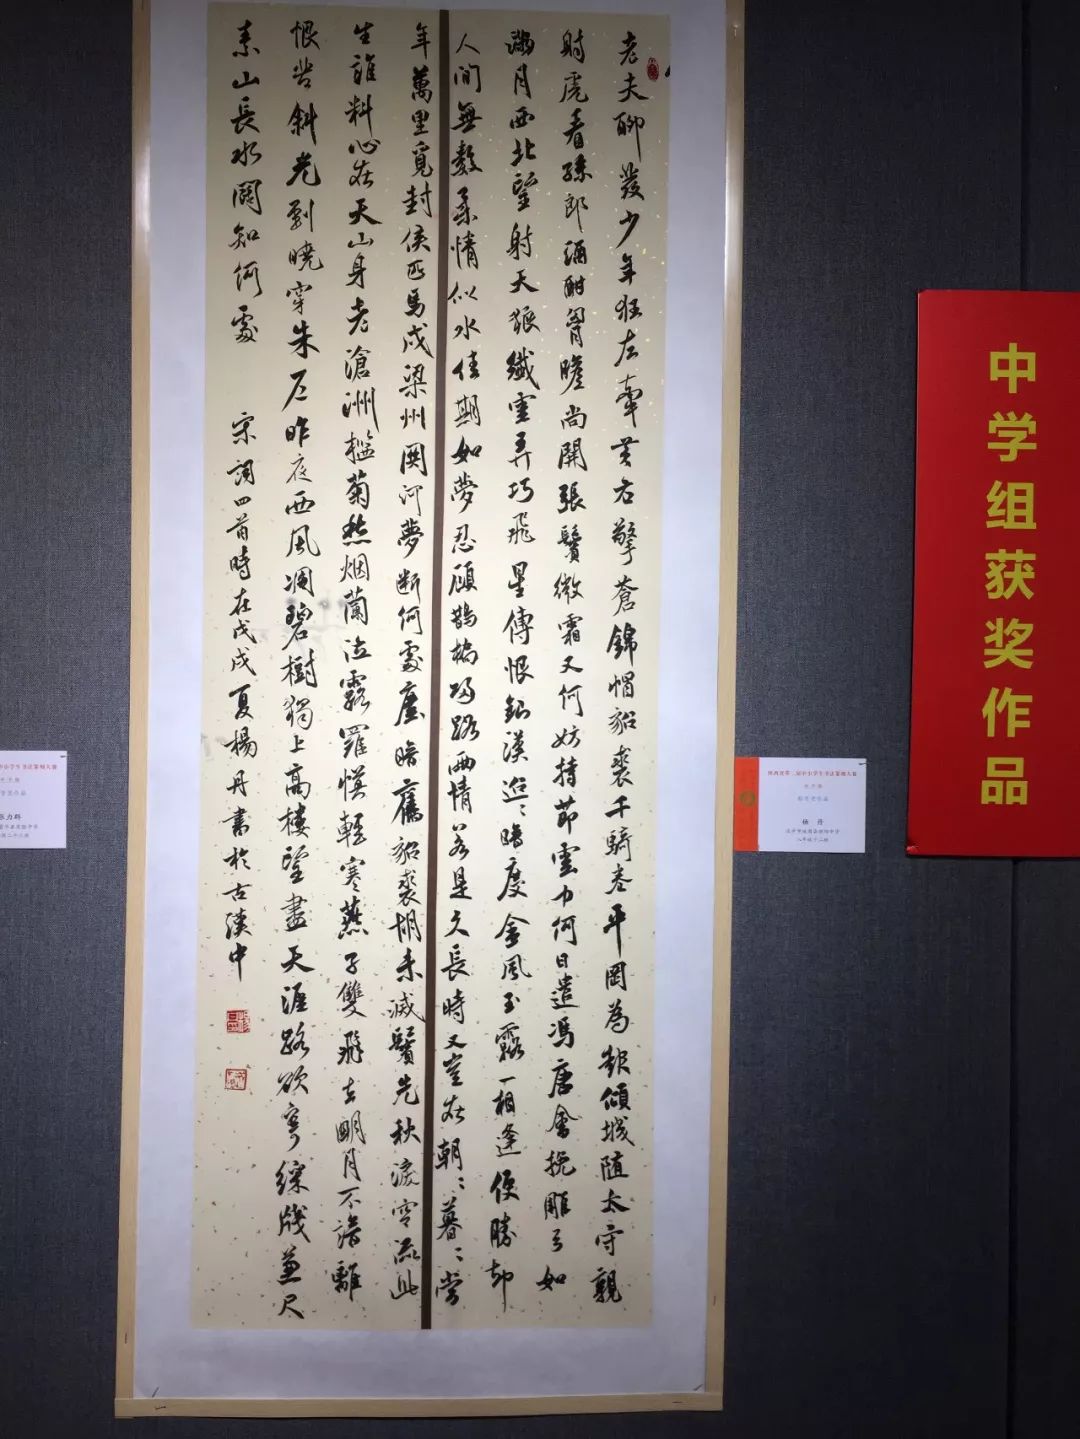 老夫聊發少年狂左牽黄右擎蒼錦帽貂裘千騎卷平岡為報傾城隨太守親
射虎看孫郎酒酣胸膽尚開張鬢微霜又何妨持節雲中何日遣馮唐會挽雕弓如
滿月西北望射天狼纖雲弄巧飛星傳恨銀漢迢〻暗度金風玉露一相逢便勝却
人間無數柔情似水佳期如夢忍顧鵲橋歸路兩情若是久長時又豈在朝〻暮〻當
年萬里覓封侯匹馬戍梁州關河夢斷何處塵暗舊貂裘胡未滅鬢先秋淚空流此
生誰料心在天山身老滄洲檻菊愁烟蘭泣露羅幙輕寒燕子雙飛去明月不諳離
恨苦斜光到曉穿朱戶昨夜西風凋碧樹獨上高樓望盡天涯路欲寄綵牋兼尺
素山長水闊知何處 宋詞四首時在戊戌夏楊丹書於古漢中
中学组获奖作品
陕西省第二届中小学生书法篆刻大赛
杨 丹
八年级十二班